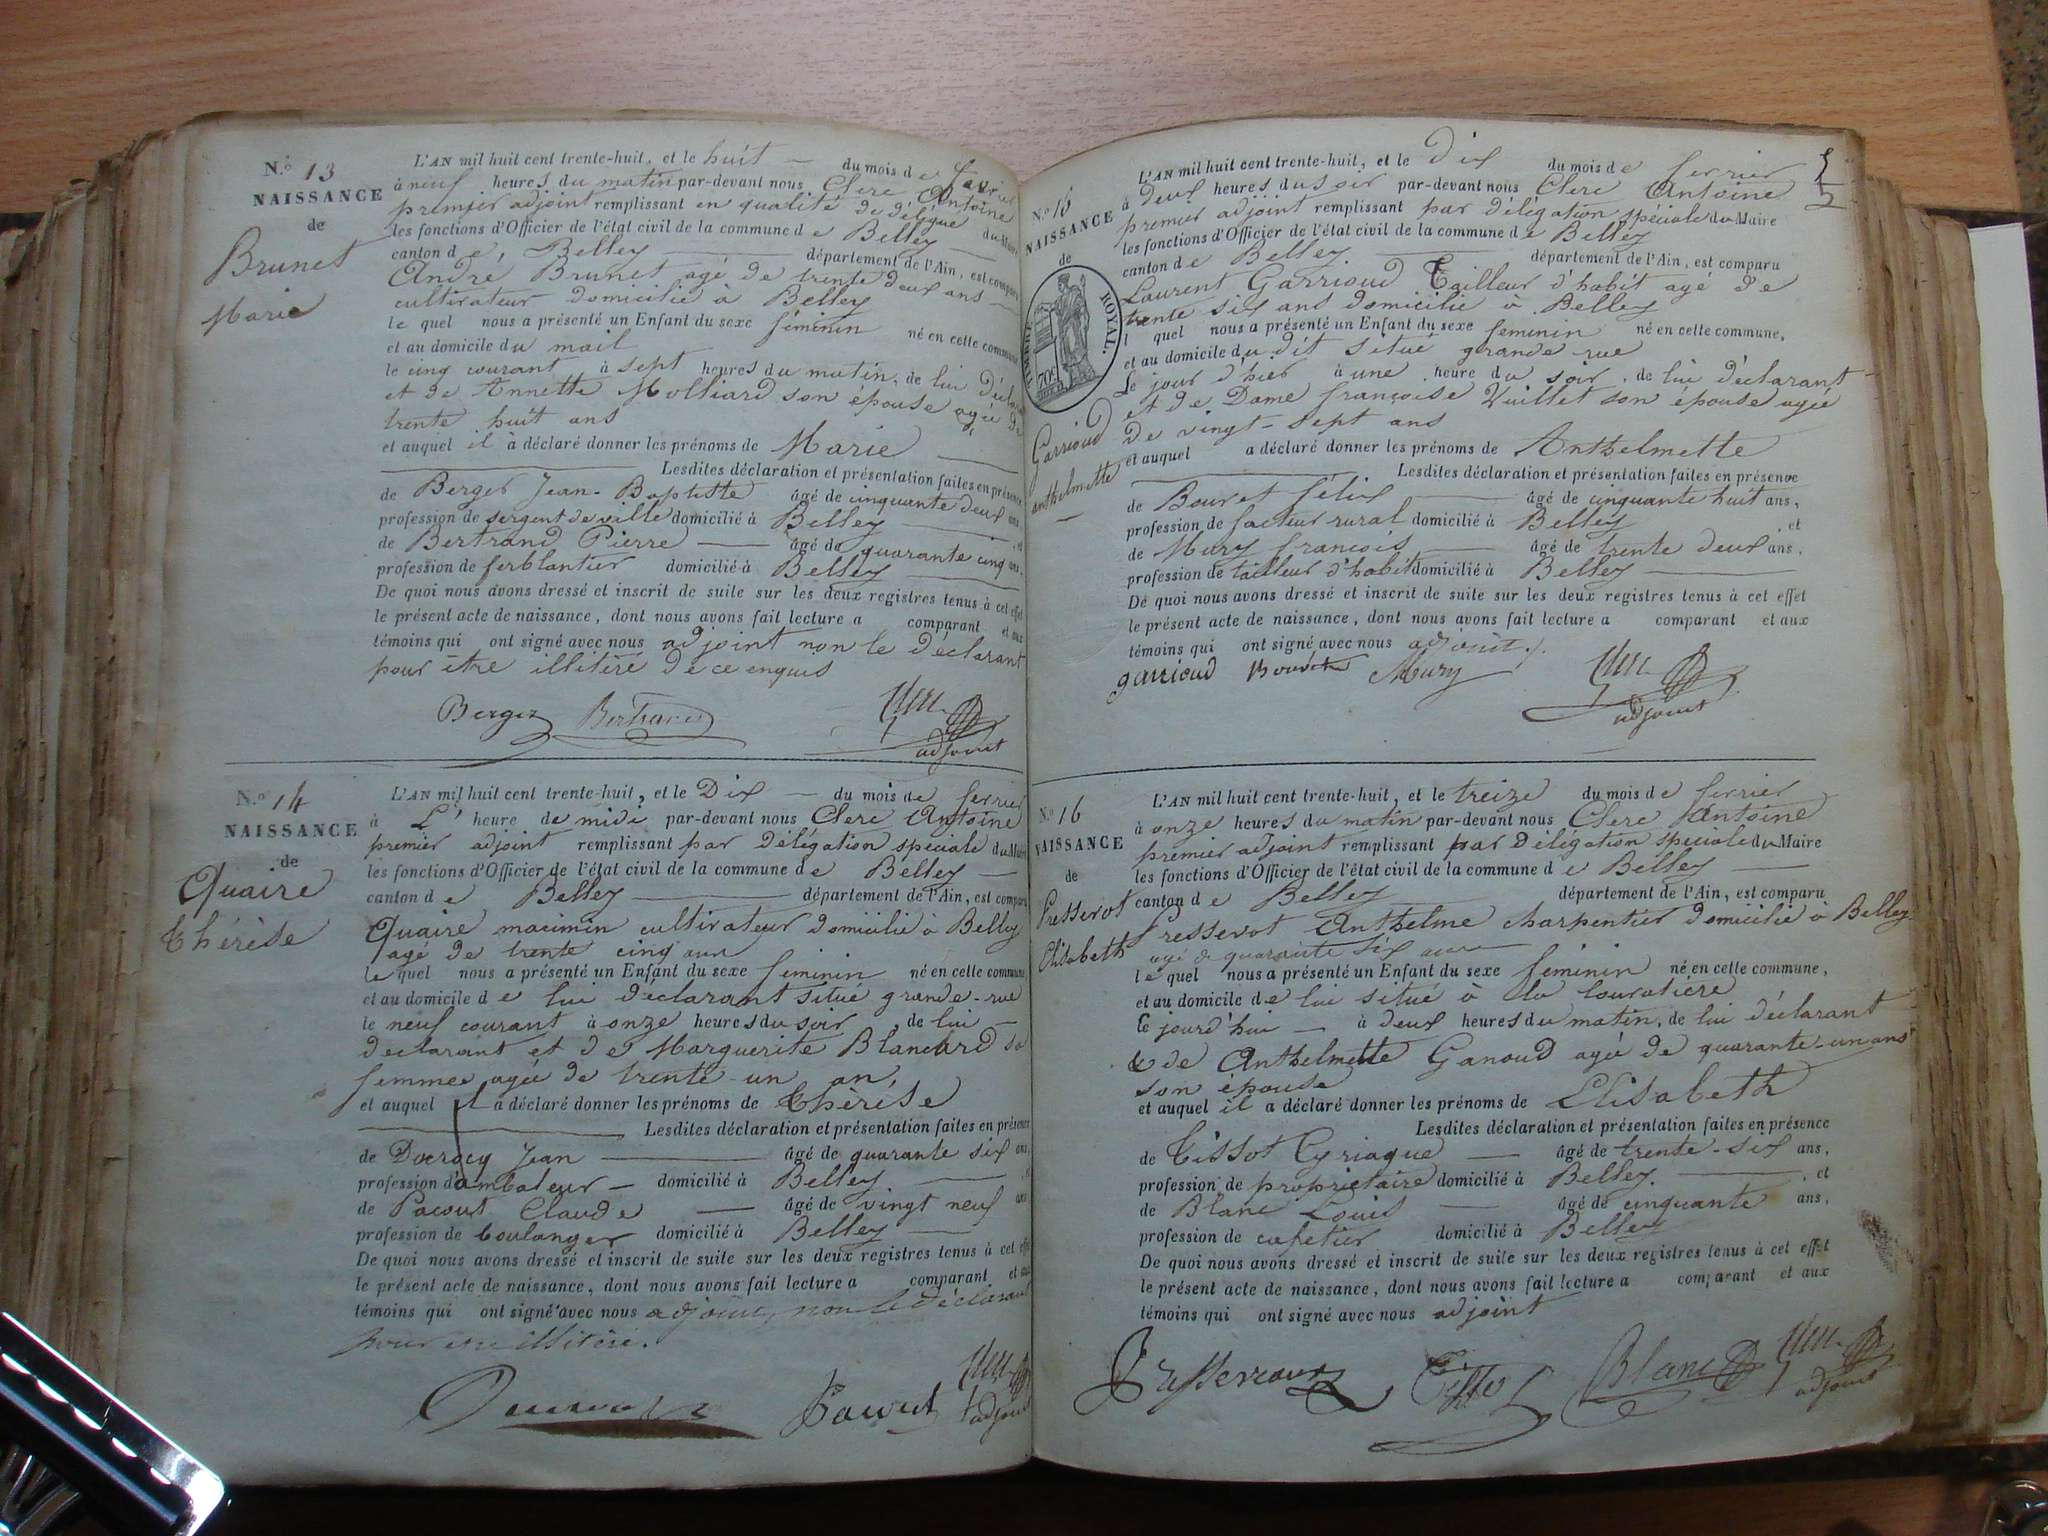 N.º 13
NAISSANCE
de
Brunet
Marie
L'AN mil huit cent trente-huit, et le huit du mois de
à neuf heures du matin par-devant nous Clerc Antoine
premier adjoint remplissant en qualité de délégué du Maire
les fonctions d'Officier de l'état civil de la commune de Belley
canton de Belley département de l'Ain, est comparu
André Brunet agé de trente deux ans
cultivateur domicilié à Belley
le quel nous a présenté un Enfant du sexe féminin né en cette commune
et au domicile du
le cinq courant à sept heures du matin, de lui
et de Annette Molliard son épouse agée de
trente huit ans
et auquel il à déclaré donner les prénoms de Marie
Lesdites déclaration et présentation faites en présence
de Berger Jean-Baptiste âgé de cinquante deux ans
profession de sergent de ville domicilié à Belley
de Bertrand Pierre âgé de quarante cinq ans
profession de ferblantier domicilié à Belley
De quoi nous avons dressé et inscrit de suite sur les deux registres tenus à cet effet
le présent acte de naissance, dont nous avons fait lecture a comparant et aux
témoins qui ont signé avec nous adjoint non le déclarant
pour être illitéré de ce enquis
Berger Bertrand
adjoint
N.º 14
NAISSANCE
de
Quaire
Thérèse
L'AN mil huit cent trente-huit, et le Dix du mois de fevrier
à L' heure de midi par-devant nous Clerc Antoine
premier adjoint remplissant par délégation spéciale du Maire
les fonctions d'Officier de l'état civil de la commune de Belley
canton de Belley département de l'Ain, est comparu
Quaire maximin cultivateur domicilié à Belley
agé de trente cinq ans
le quel nous a présenté un Enfant du sexe feminin né en cette commune
et au domicile de lui déclarant situé grande-rue
le neuf courant à onze heures du soir, de lui
declarant et de Marguerite Blanchard sa
femme agée de trente-un an,
et auquel il a déclaré donner les prénoms de Thérèse
Lesdites déclaration et présentation faites en présence
de Jean âgé de quarante six ans,
profession d domicilié à Belley
de Pacout Claude âgé de vingt neuf ans
profession de boulanger domicilié à Belley
De quoi nous avons dressé et inscrit de suite sur les deux registres tenus à cet effet
le présent acte de naissance, dont nous avons fait lecture a comparant et aux
témoins qui ont signé avec nous adjoint, non le déclarant
pour être illitéré.
Pacout
adjoint
5
N.º 15
NAISSANCE
de
TIMBRE ROYAL.
70c
Garrioud
anthelmette
L'AN mil huit cent trente-huit, et le Dix du mois de fevrier
à Deux heures du soir par-devant nous Clerc Antoine
premier adjoint remplissant par délégation spéciale du Maire
les fonctions d'Officier de l'état civil de la commune de Belley
canton de Belley. département de l'Ain, est comparu
Laurent Garrioud Tailleur d'habit agé de
trente six ans domicilié à Belley
l quel nous a présenté un Enfant du sexe feminin né en cette commune,
et au domicile du dit situé grande rue
Le jour d'hier à une heure du soir, de lui déclarant
et de Dame françoise Vuillet son épouse agée
de vingt-sept ans
et auquel a déclaré donner les prénoms de Anthelmette
Lesdites déclaration et présentation faites en présence
de Bouvet félix âgé de cinquante huit ans,
profession de facteur rural domicilié à Belley, et
de Mury françois âgé de trente deux ans,
profession de tailleur d'habit domicilié à Belley
De quoi nous avons dressé et inscrit de suite sur les deux registres tenus à cet effet
le présent acte de naissance, dont nous avons fait lecture a comparant et aux
témoins qui ont signé avec nous adjoint.
garrioud Bouvet Mury
adjoint
N.º 16
NAISSANCE
de
Presserot
Elisabeth
L'AN mil huit cent trente-huit, et le treize du mois de fevrier
à onze heures du matin par-devant nous Clerc Antoine
premier adjoint remplissant par Délégation spéciale du Maire
les fonctions d'Officier de l'état civil de la commune de Belley
canton de Belley département de l'Ain, est comparu
Presserot Anthelme charpentier domicilié à Belley
agé de quarante six ans
le quel nous a présenté un Enfant du sexe feminin né en cette commune,
et au domicile de lui situé à la
le jourd'hui à deux heures du matin, de lui déclarant
& de Anthelmette Ganoud agée de quarante-un ans
son épouse
et auquel il a déclaré donner les prénoms de Elisabeth
Lesdites déclaration et présentation faites en présence
de Tissot Cyriaque âgé de trente-six ans,
profession de propriétaire domicilié à Belley, et
de Blanc Louis âgé de cinquante ans,
profession de cafetier domicilié à Belley
De quoi nous avons dressé et inscrit de suite sur les deux registres tenus à cet effet
le présent acte de naissance, dont nous avons fait lecture a comparant et aux
témoins qui ont signé avec nous adjoint
Blanc
adjoint